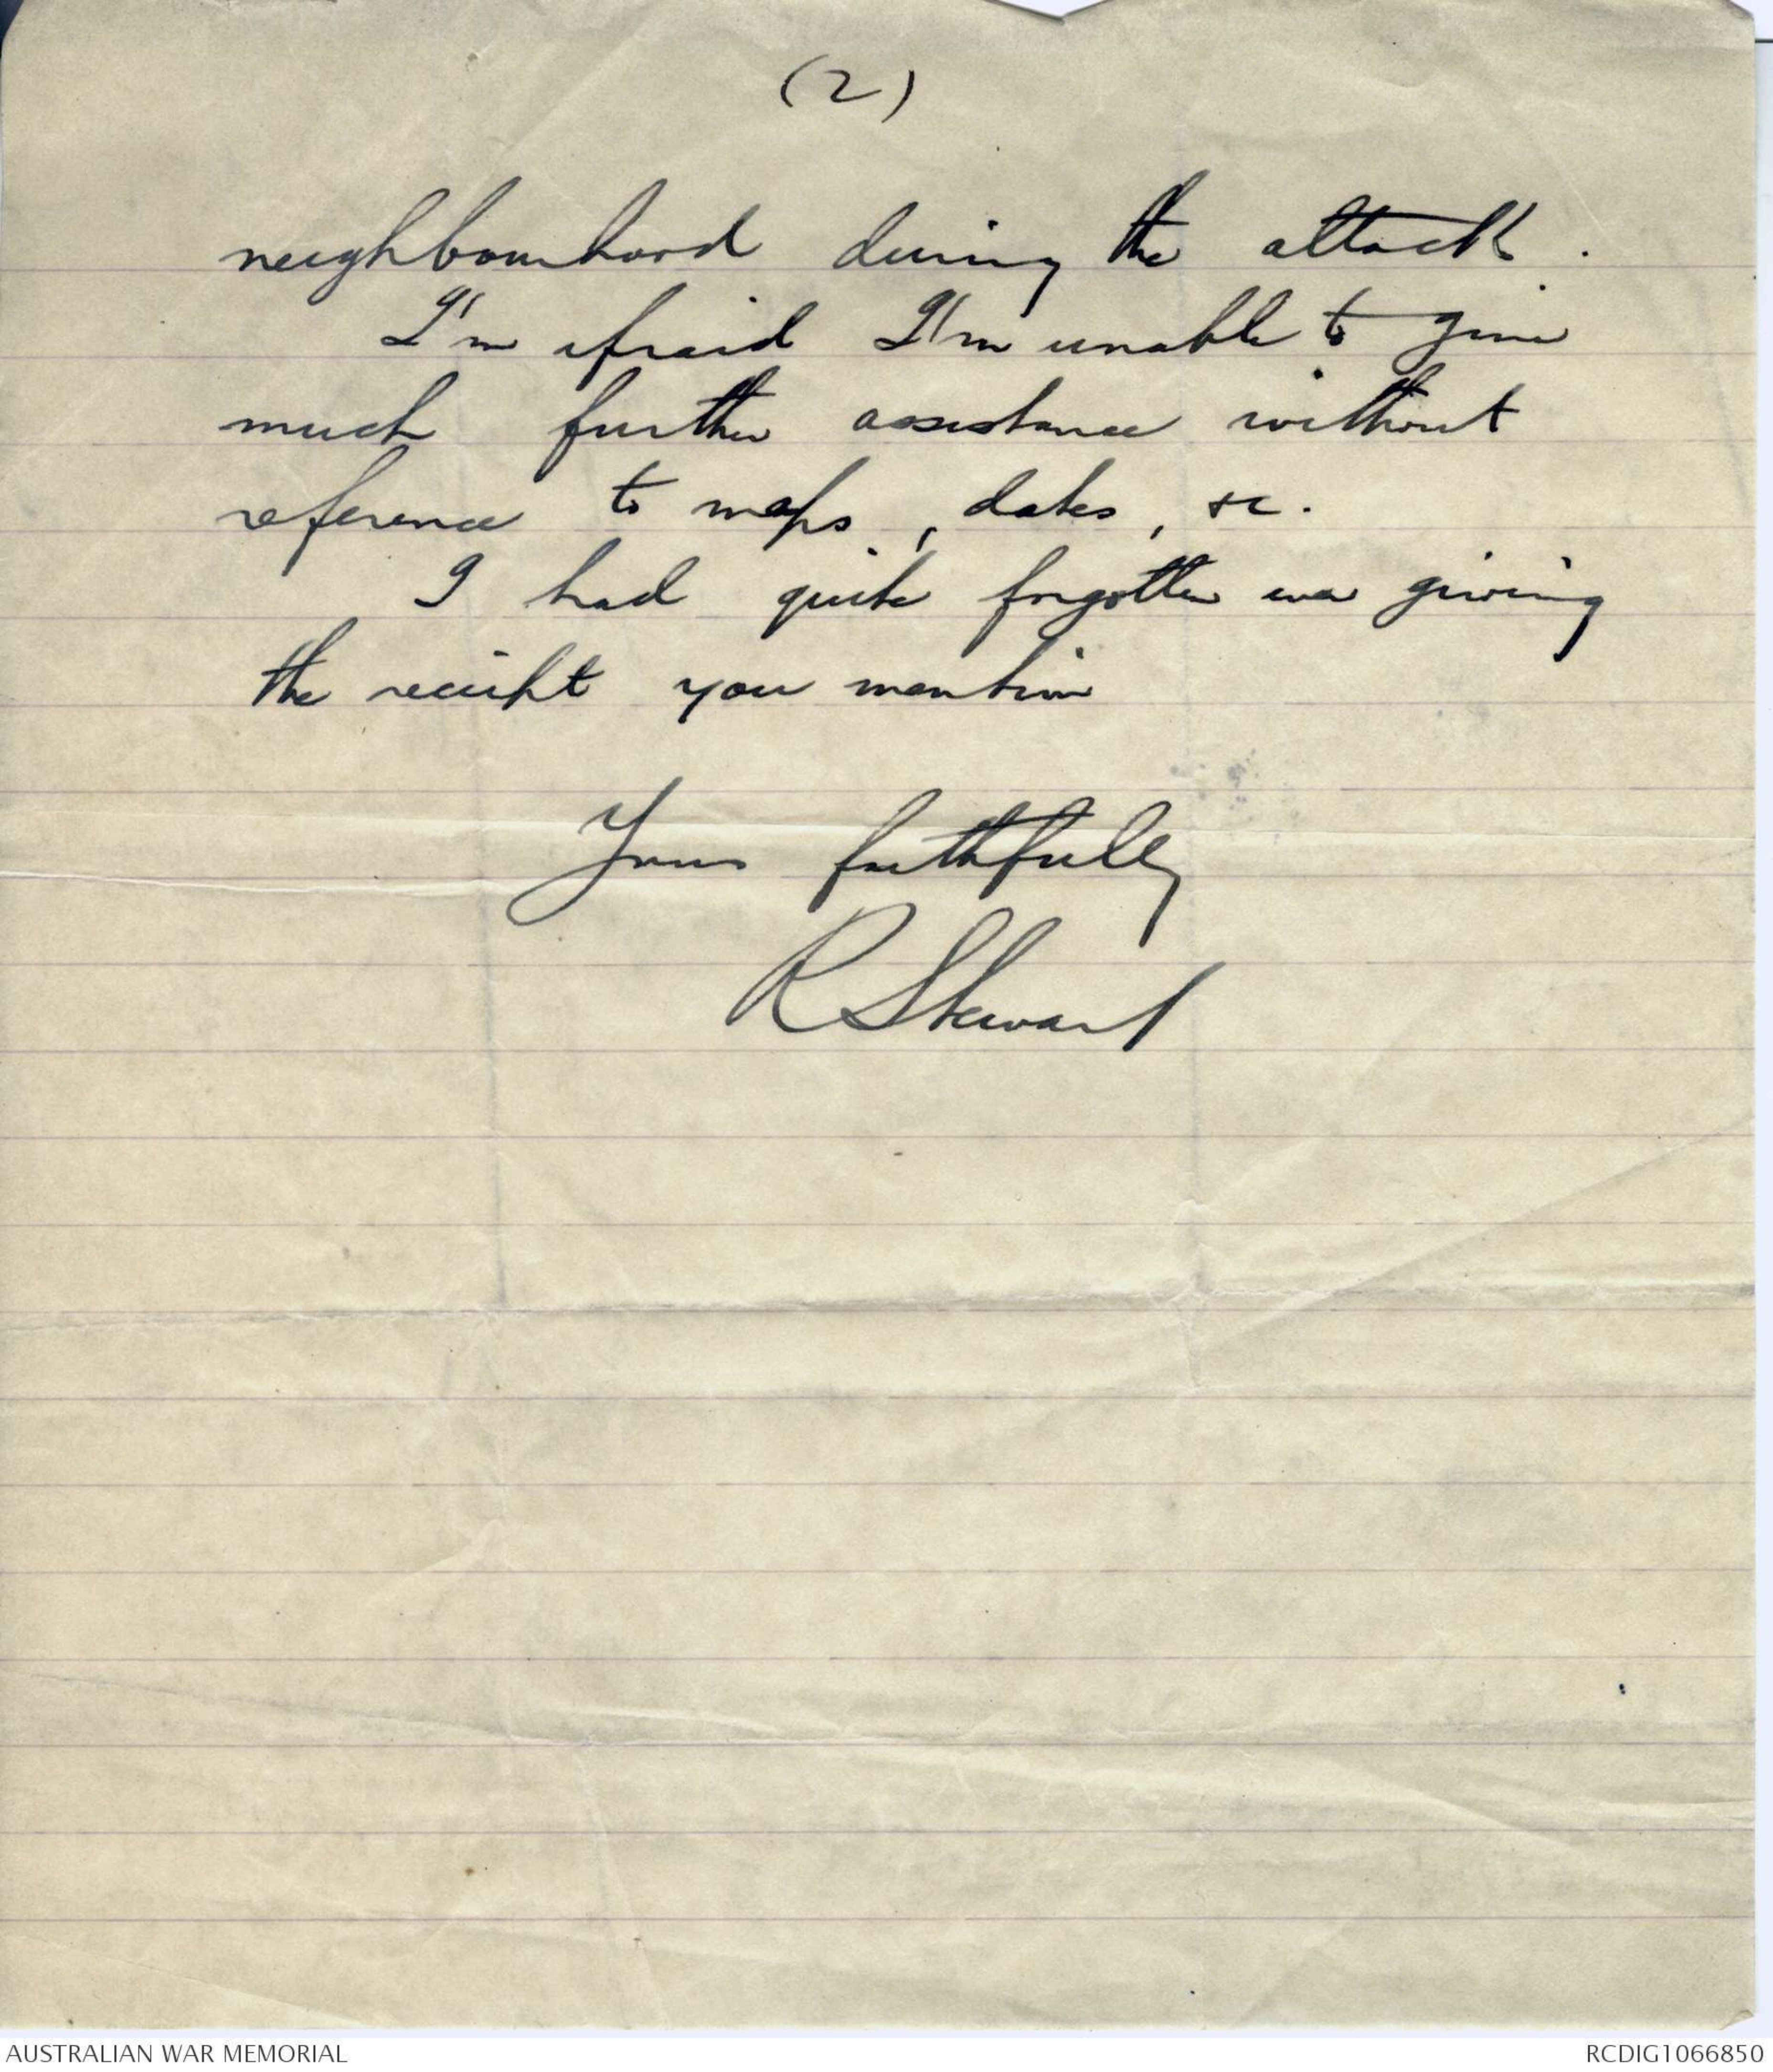 (2)
neighbourhood during the attack.
I'm afraid I'm unable to give
much further assistance without
reference to maps, dates, &c.
I had quite forgotten ever giving
the receipt you mention
Yours faithfully
R Stewart
AUSTRALIAN WAR MEMORIAL
RCDIG1066850